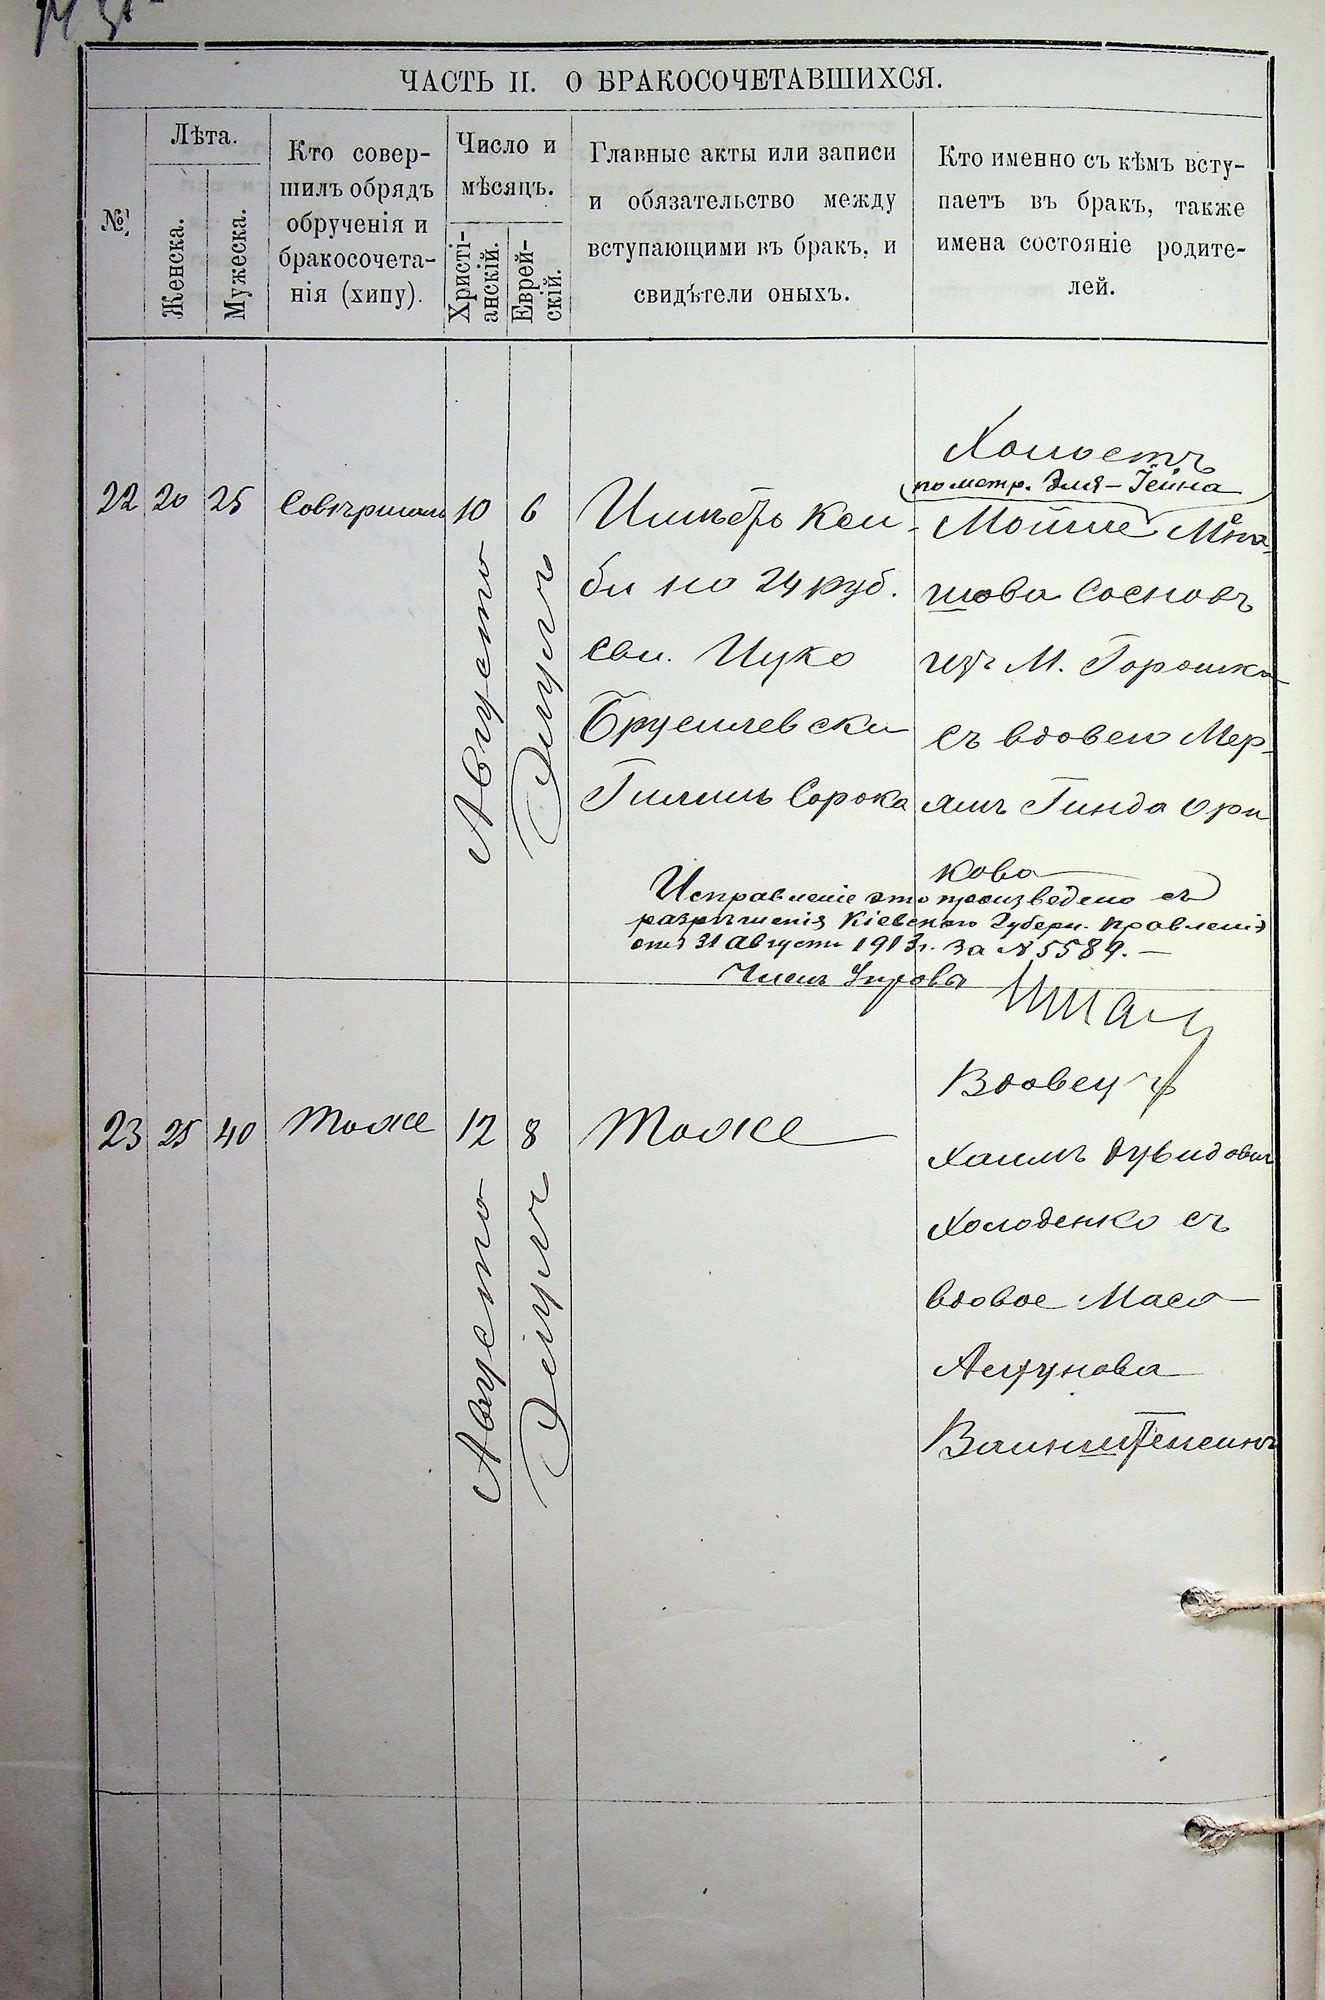 ЧАСТЬ II. О БРАКОСОЧЕТАВШИХСЯ.
№
Лѣта.
Женска.
Мужеска.
Кто совер-
шилъ обрядъ
обрученія и
бракосочета-
нія (хипу).
Число и
мѣсяцъ.
Христі-
анскій.
Еврей-
скій.
Главные акты или записи
и обязательство между
вступающими въ бракъ, и
свидѣтели оныхъ.
Кто именно съ кѣмъ всту-
паетъ въ бракъ, также
имена состояніе родите-
лей.
22
20
25
Совершилъ
10
Августа
6
Элулъ
по 24 руб.
Сви. Ицко
Брусилевски
Сорока
Холостъ
по метр. Эля-
Мойше Мена-
шова Сосновъ
изъ М. Горошки
съ вдовею Мер-
ямъ Гинда Ори
кова
Исправленіе это произведено съ
разрѣшенія Кіевского Губерн. Правленія
отъ 31 Августа 1913г. за № 5589. —
Членъ Управы
23
25
40
Тоже
12
Августа
8
Элулъ
Тоже
Вдовецъ
Хаимъ Дувидовъ
Холоденко съ
вдовое Мася
Ваинштеинъ